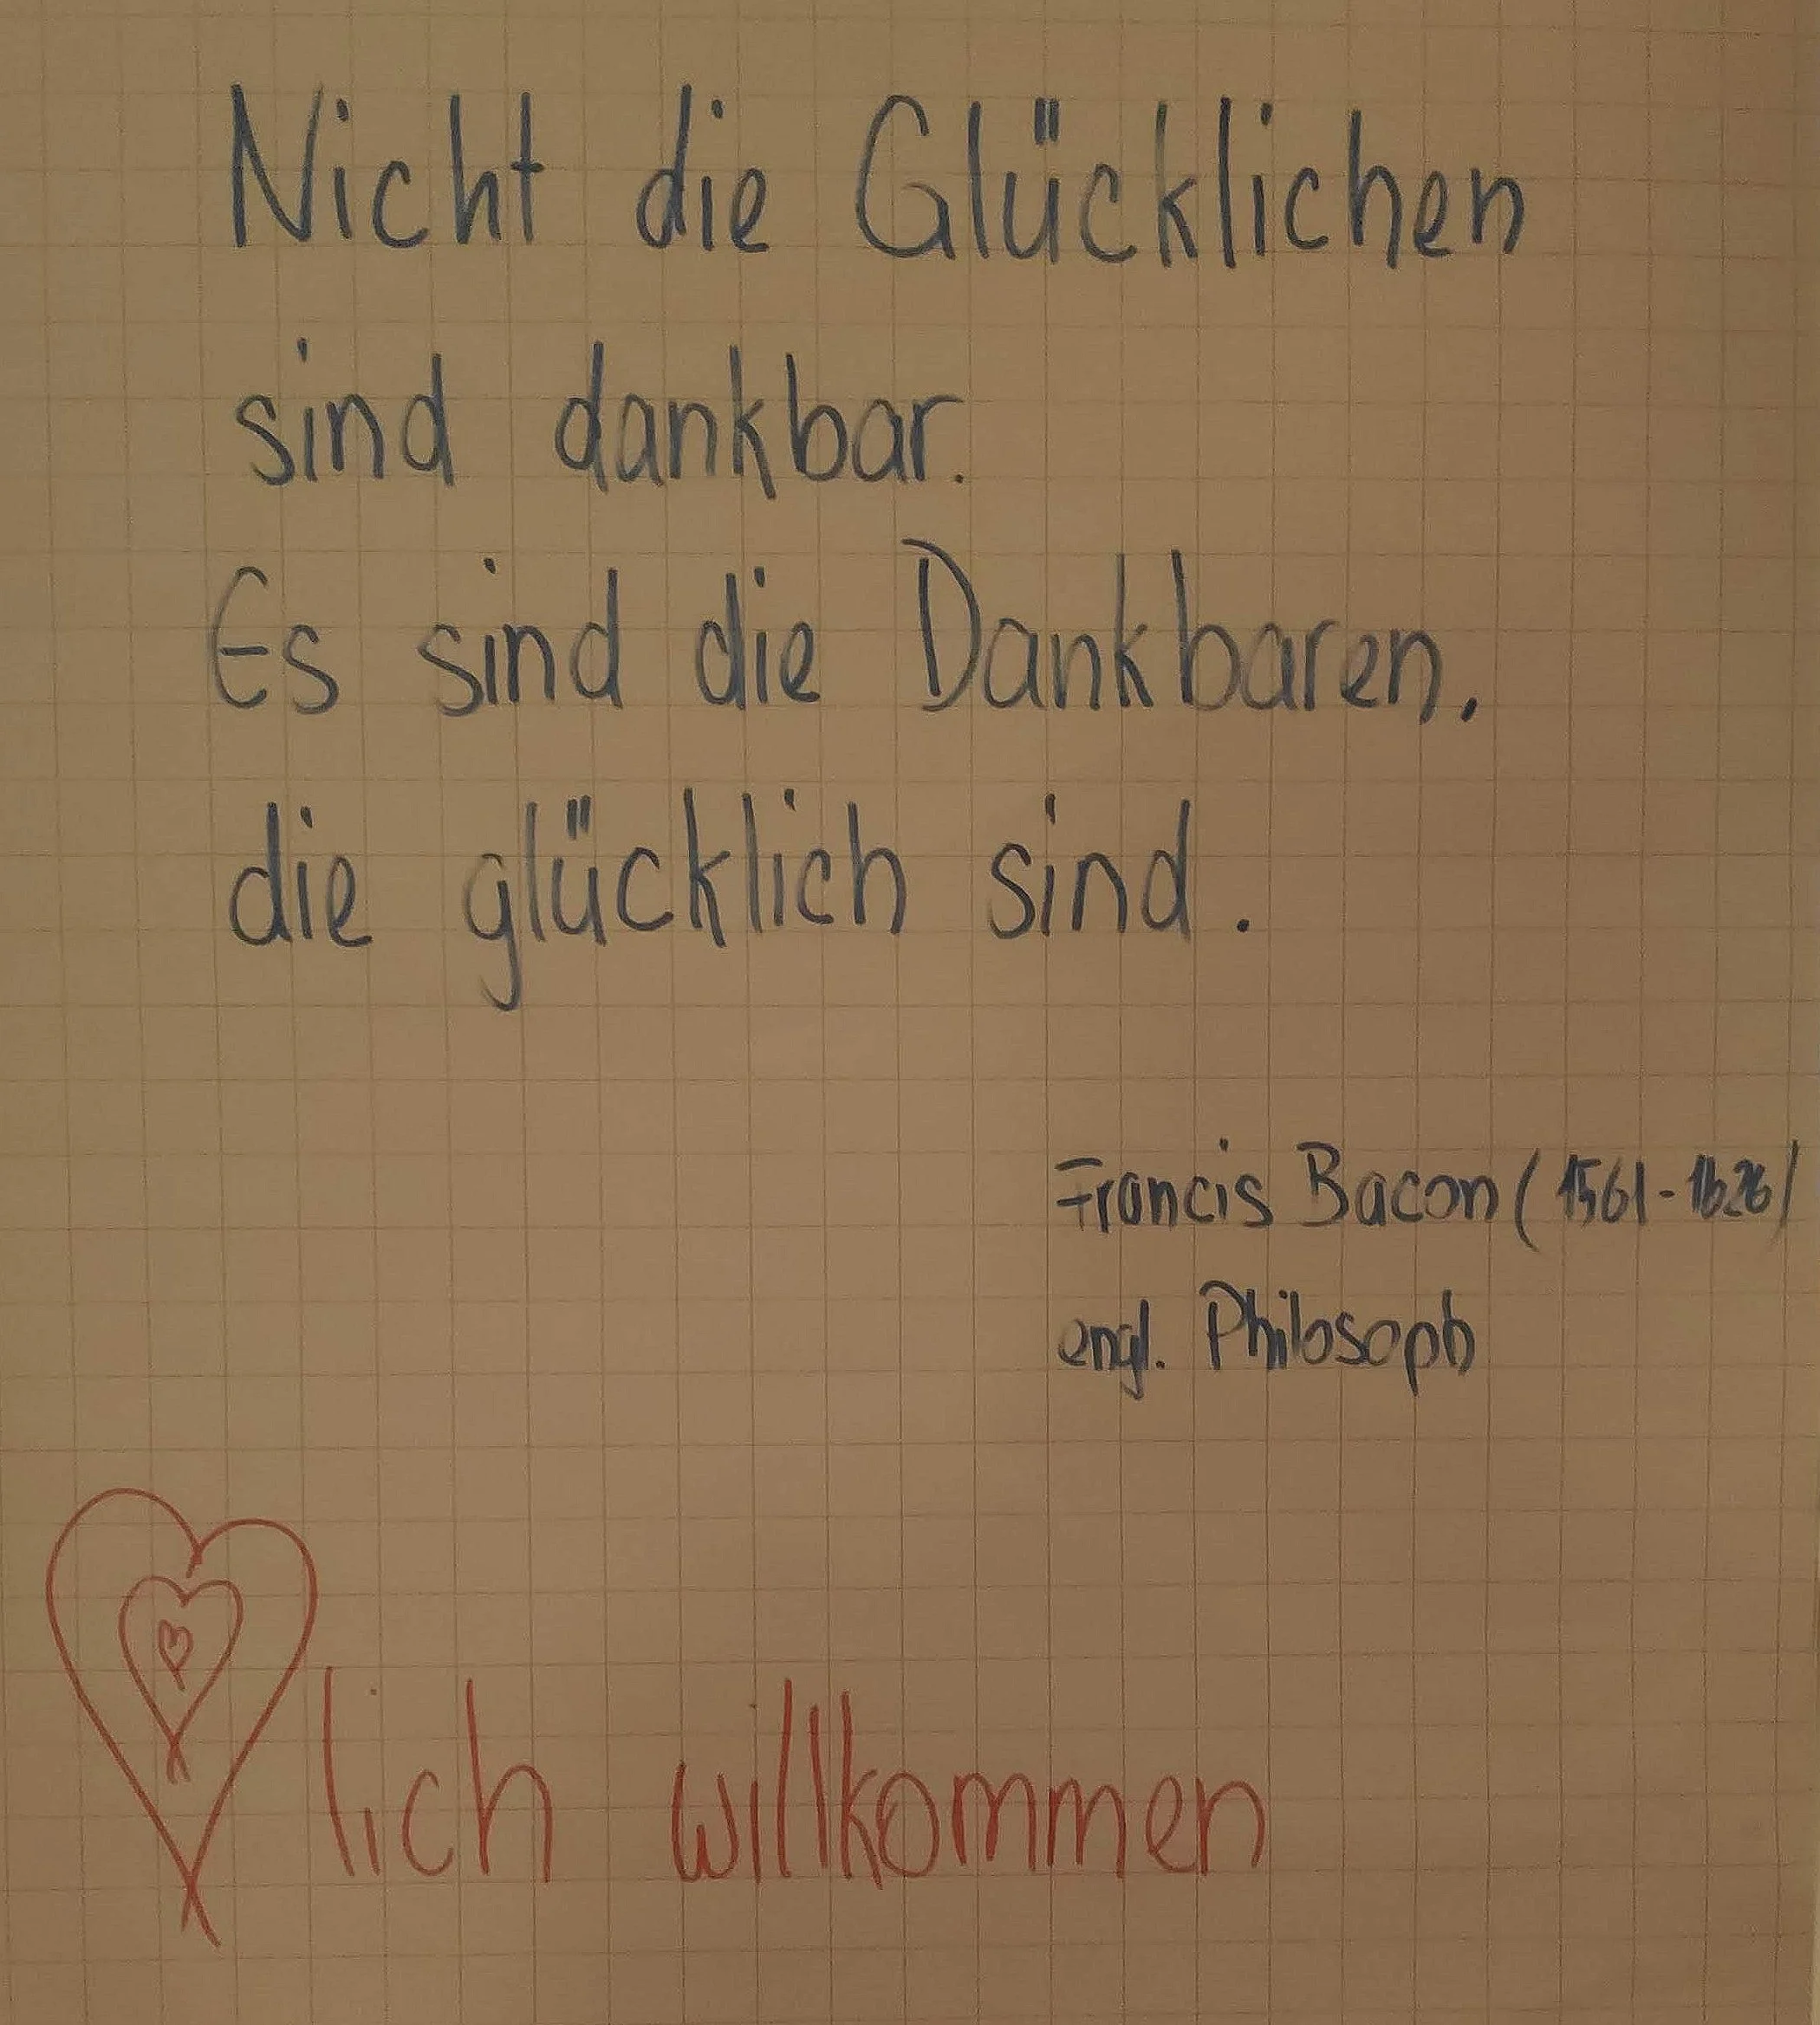 Nicht die Glücklichen
sind dankbar.
Es sind die Dankbaren,
die glücklich sind.
Francis Bacon (1561-1626)
engl. Philosoph
lich willkommen